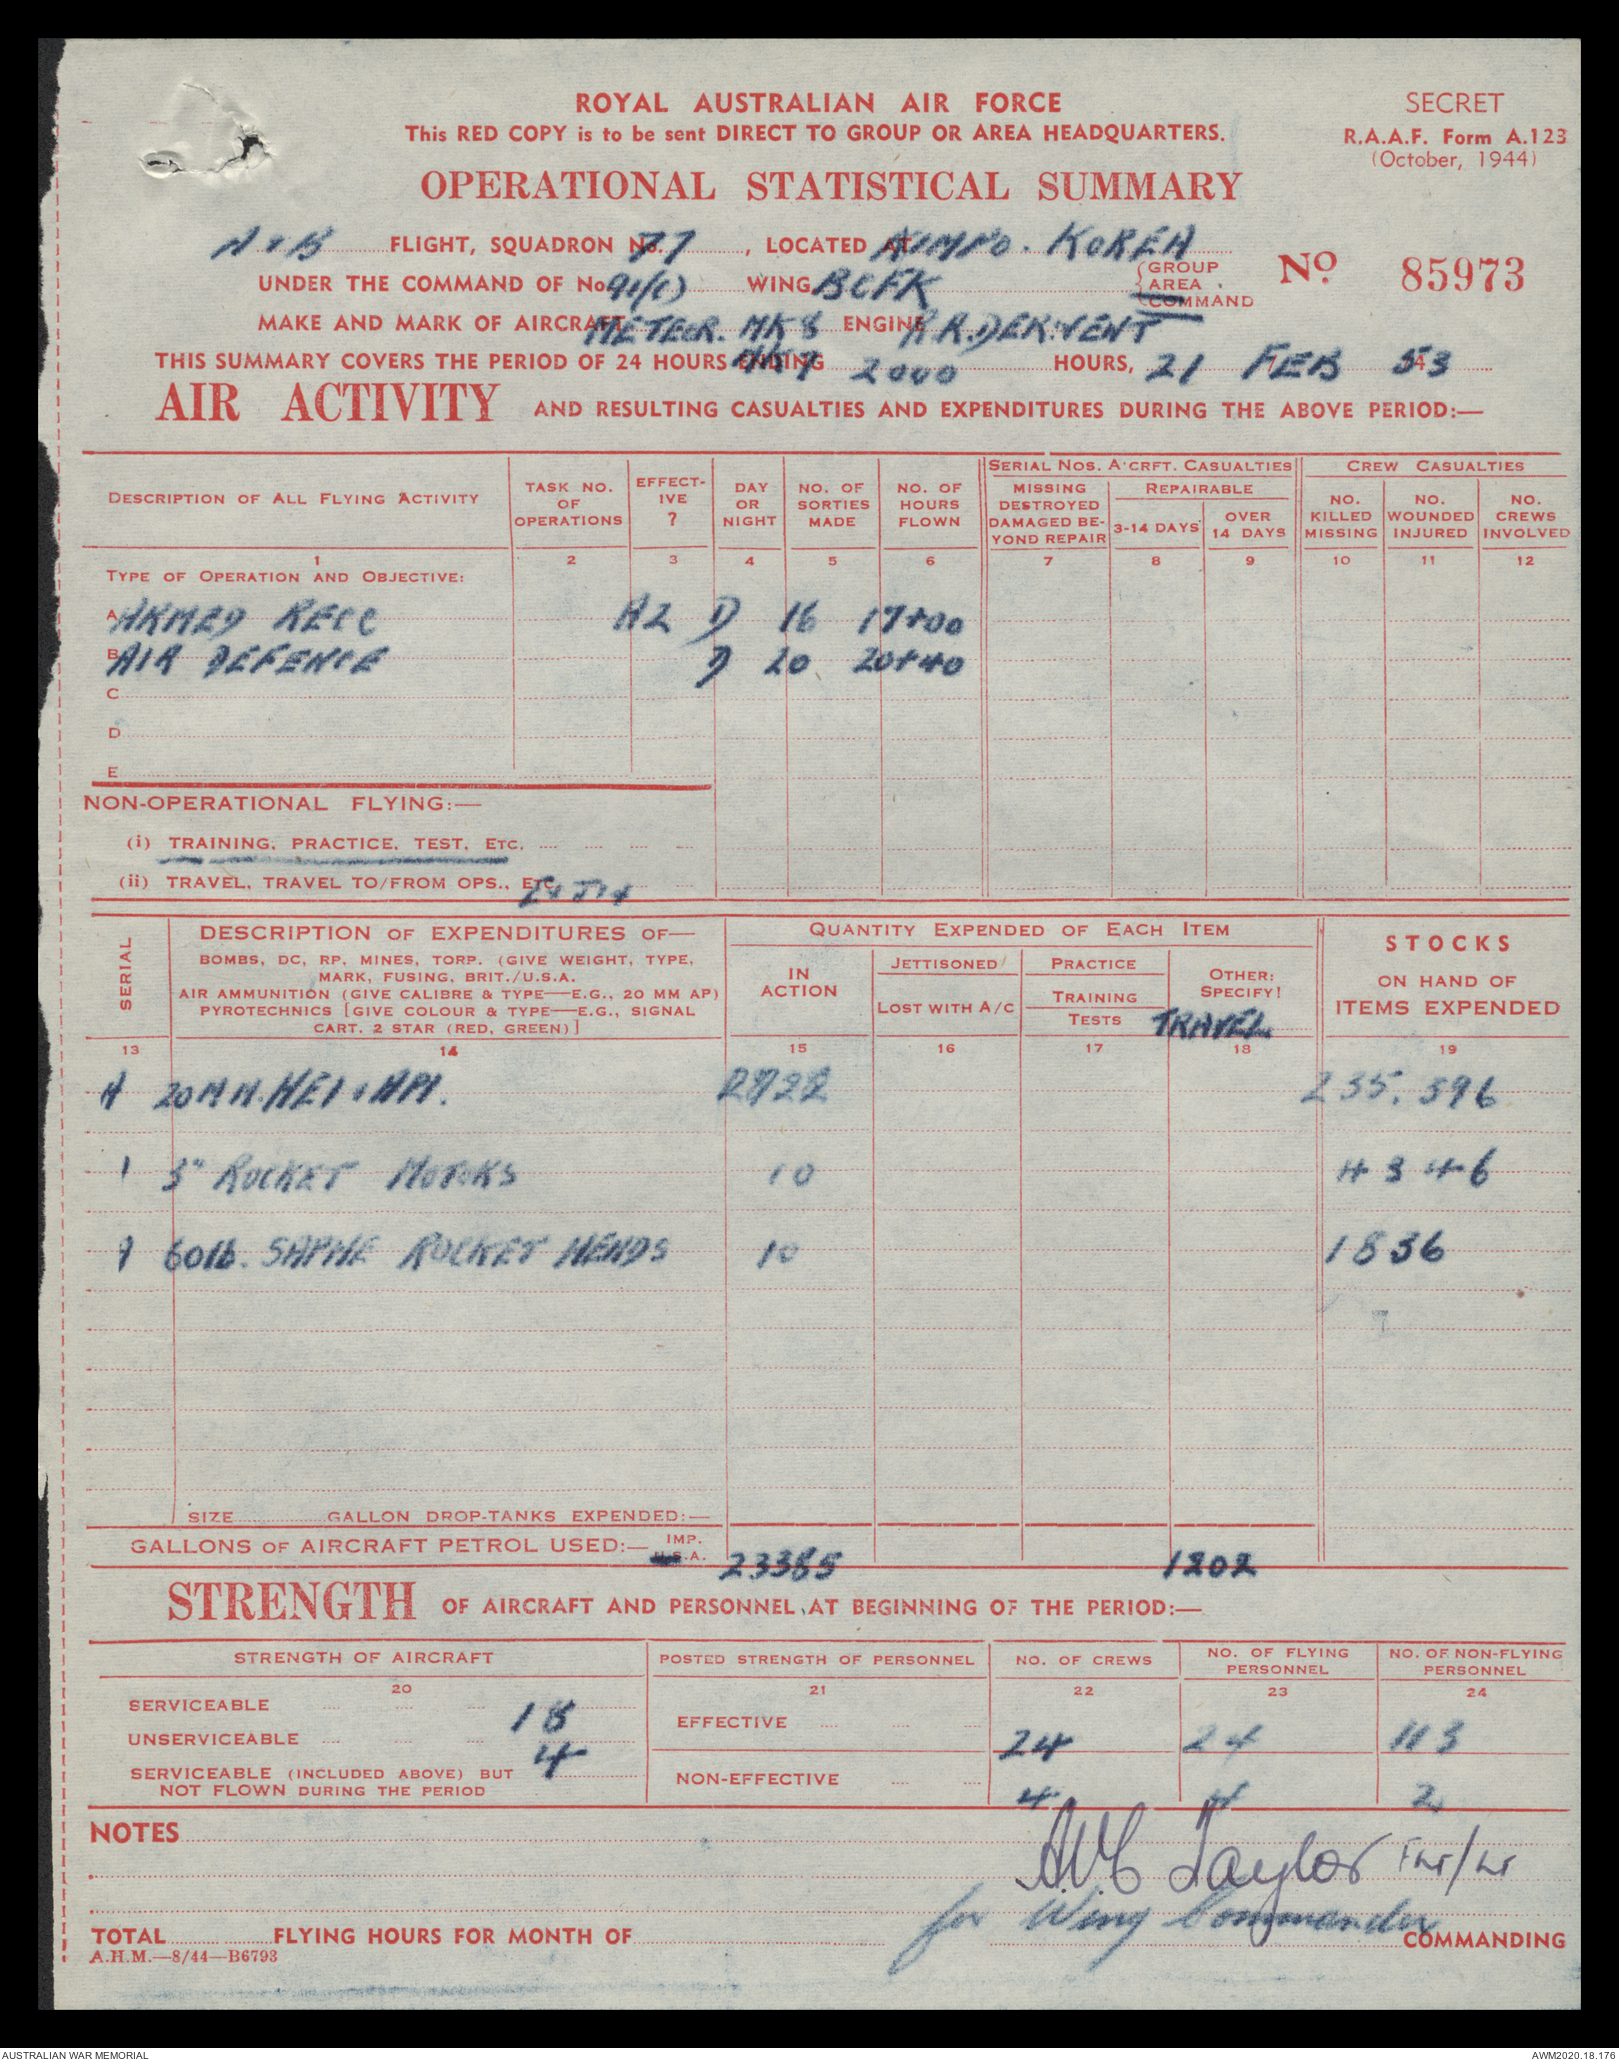 ROYAL AUSTRALIAN AIR FORCE
This RED COPY is to be sent DIRECT TO GROUP OR AREA HEADQUARTERS.
SECRET
R.A.A.F. Form A.123
(October, 1944)
OPERATIONAL STATISTICAL SUMMARY
A & B FLIGHT, SQUADRON No. 77, LOCATED AT KIMPO. KOREA
UNDER THE COMMAND OF No. 91(C) WING BCFK {GROUP AREA COMMAND
No 85973
MAKE AND MARK OF AIRCRAFT METEOR. MK 8 ENGINE R.R. DERWENT
THIS SUMMARY COVERS THE PERIOD OF 24 HOURS ENDING 2000 HOURS, 21 FEB 53
AIR ACTIVITY AND RESULTING CASUALTIES AND EXPENDITURES DURING THE ABOVE PERIOD:—
DESCRIPTION OF ALL FLYING ACTIVITY
TASK NO. OF OPERATIONS
EFFECTIVE ?
DAY OR NIGHT
NO. OF SORTIES MADE
NO. OF HOURS FLOWN
SERIAL NOS. A'CRFT. CASUALTIES
MISSING DESTROYED DAMAGED BEYOND REPAIR
REPAIRABLE
3-14 DAYS
OVER 14 DAYS
CREW CASUALTIES
NO. KILLED MISSING
NO. WOUNDED INJURED
NO. CREWS INVOLVED
1 2 3 4 5 6 7 8 9 10 11 12
TYPE OF OPERATION AND OBJECTIVE:
A ARMED RECC A2 D 16 17+00
B AIR DEFENCE D 20 20+40
C
D
E
NON-OPERATIONAL FLYING:—
(i) TRAINING, PRACTICE, TEST, ETC.
(ii) TRAVEL, TRAVEL TO/FROM OPS., ETC.
SERIAL
DESCRIPTION OF EXPENDITURES OF—
BOMBS, DC, RP, MINES, TORP. (GIVE WEIGHT, TYPE,
MARK, FUSING, BRIT./U.S.A.
AIR AMMUNITION (GIVE CALIBRE & TYPE—E.G., 20 MM AP)
PYROTECHNICS [GIVE COLOUR & TYPE—E.G., SIGNAL
CART. 2 STAR (RED, GREEN)]
QUANTITY EXPENDED OF EACH ITEM
IN ACTION
JETTISONED
LOST WITH A/C
PRACTICE
TRAINING
TESTS
OTHER: SPECIFY!
TRAVEL
STOCKS
ON HAND OF
ITEMS EXPENDED
13 14 15 16 17 18 19
A 20 M M. HEI & API. 2722 235.396
1 3" ROCKET MOTORS 10 4346
A 60lb. SAPHE ROCKET HEADS 10 1836
SIZE GALLON DROP-TANKS EXPENDED:—
GALLONS OF AIRCRAFT PETROL USED:— IMP. U.S.A. 23385 1202
STRENGTH OF AIRCRAFT AND PERSONNEL, AT BEGINNING OF THE PERIOD:—
STRENGTH OF AIRCRAFT
POSTED STRENGTH OF PERSONNEL
NO. OF CREWS
NO. OF FLYING PERSONNEL
NO. OF NON-FLYING PERSONNEL
20 21 22 23 24
SERVICEABLE 18
UNSERVICEABLE 4
SERVICEABLE (INCLUDED ABOVE) BUT
NOT FLOWN DURING THE PERIOD
EFFECTIVE 24 24 113
NON-EFFECTIVE 4 4 2
NOTES
A.W.C Taylor FLT/LT
for Wing Commander
TOTAL FLYING HOURS FOR MONTH OF COMMANDING
A.H.M.—8/44—B6793
AUSTRALIAN WAR MEMORIAL
AWM2020.18.176